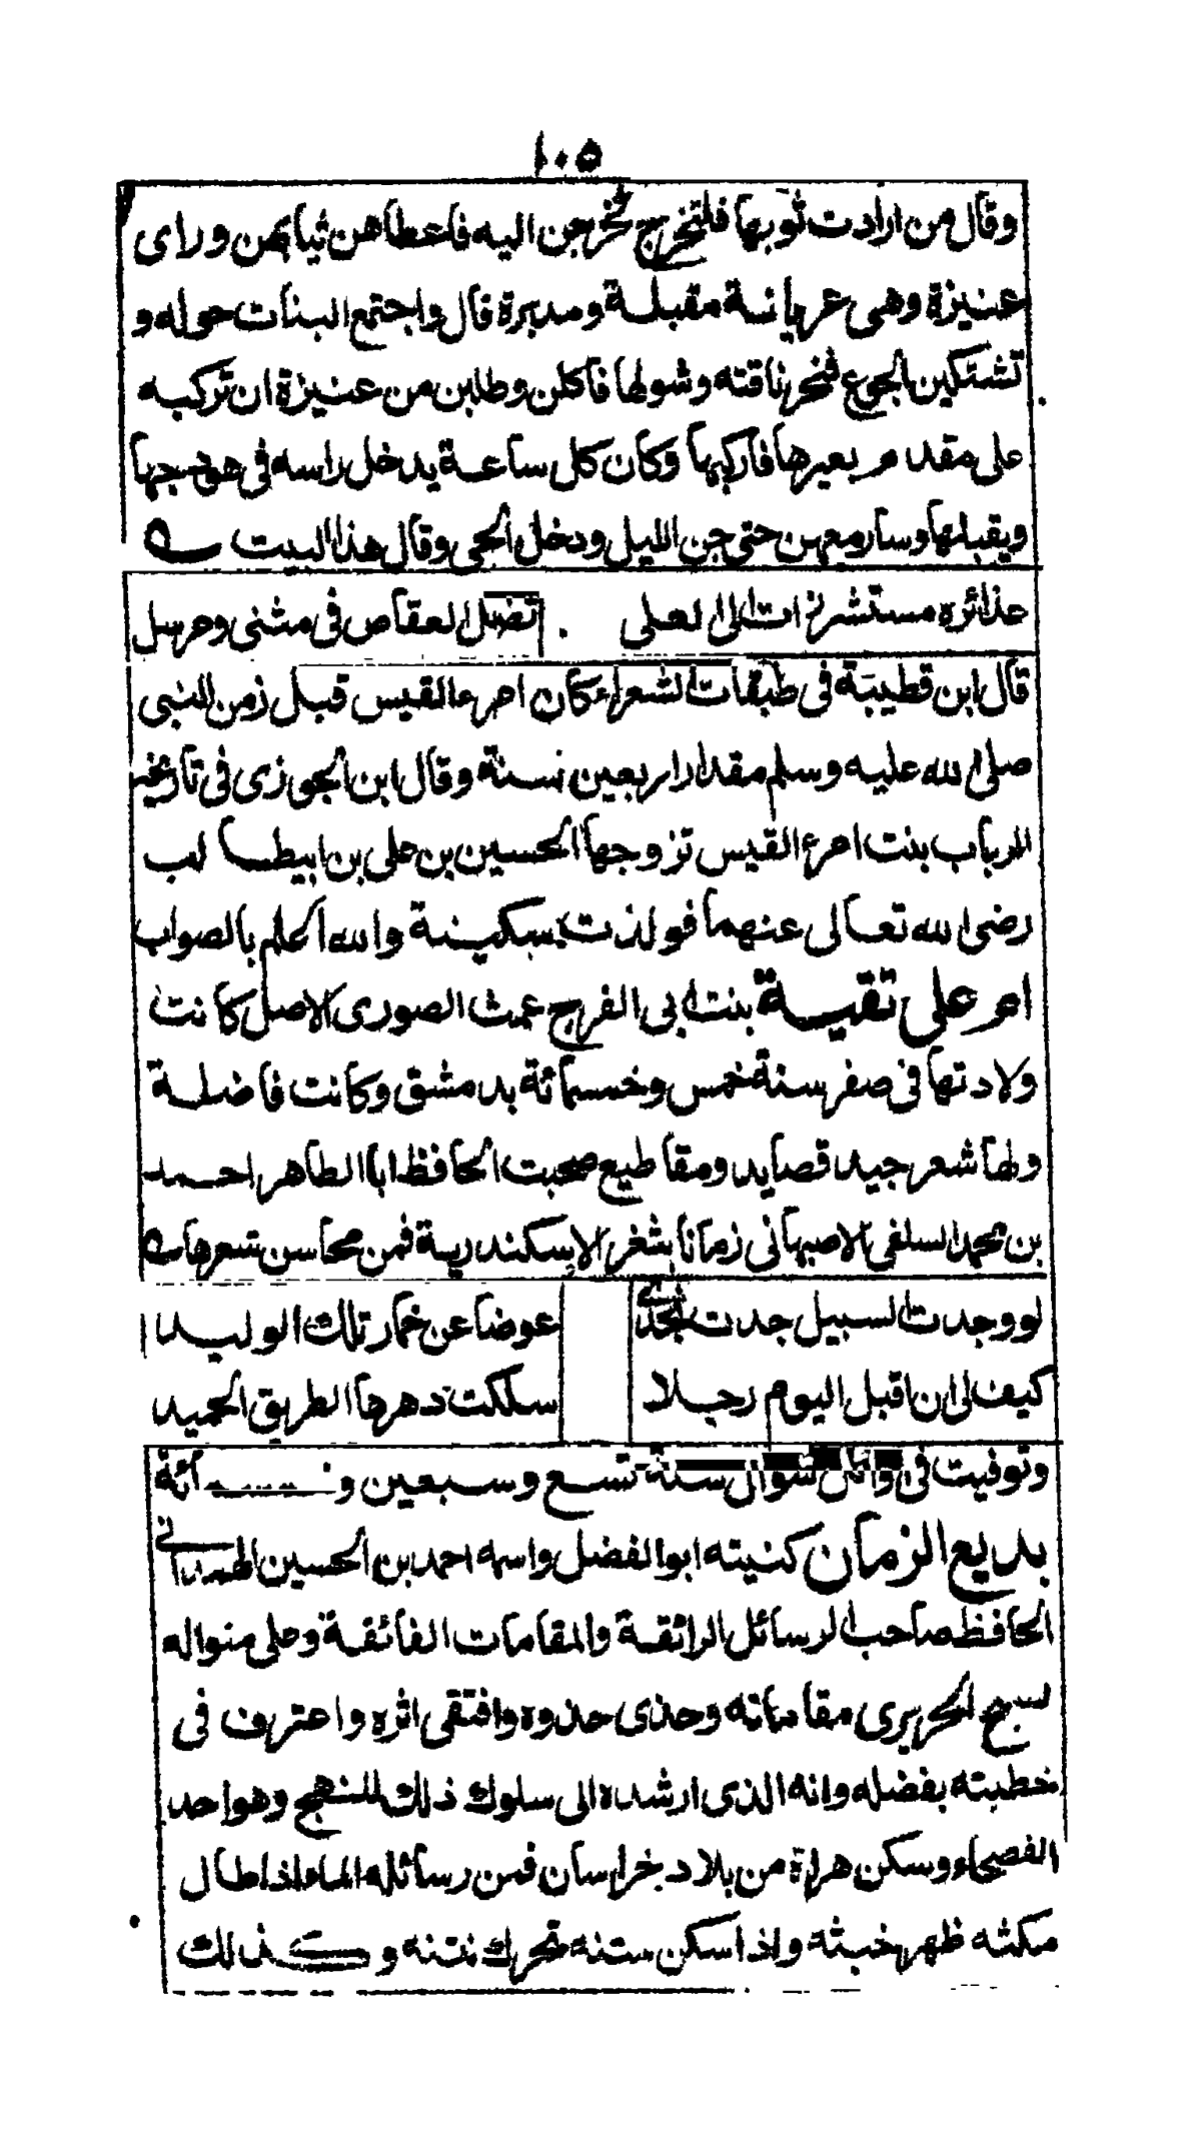 ١٠٥
وقال من ارادت ثوبها فلتخرج فخرجن اليه فاعطاهن ثيابهن وراى
عنيزة وهى عريانة مقبلة ومدبرة قال واجتمع البنات حوله و
تشتكين الجوع فنحر ناقته وشولها فاكلن وطلبن من عنيزة ان تركبه
على مقدم بعيرها فاركبها وكان كل ساعة يدخل راسه فى هودجها
ويقبلها وسار معهن حتى جن الليل ودخل الحى وقال هذا البيت
غدائره مستشزرات الى العلى تضل العقاص فى مثنى ومرسل
قال ابن قطيبة فى طبقات الشعراء كان امرء القيس قبل زمن النبى
صلى الله عليه وسلم مقدار اربعين سنة وقال ابن الجوزى فى تاريخه
الرباب بنت امرء القيس تزوجها الحسين بن على بن ابيطالب
رضى الله تعالى عنهما فولدت سكينة والله اعلم بالصواب
ام على تقية بنت ابى الفرج غيث الصورى الاصل كانت
ولادتها فى صفر سنة خمس وخمسمائة بدمشق وكانت فاضلة
ولها شعر جيد قصايد ومقاطيع صحبت الحافظ ابا الطاهر احمد
بن محمد السلفى الاصبهانى زمانا بثغر الاسكندرية فمن محاسن شعرها
لو وجدت السبيل جدت بخدى عوضا عن خمار تلك الوليد
كيف لى ان اقبل اليوم رجلا سلكت دهرها الطريق الحميد
وتوفيت فى اوائل شوال سنة تسع وسبعين وخمسمائة
بديع الزمان كنيته ابو الفضل واسمه احمد بن الحسين الهمدانى
الحافظ صاحب الرسائل الرائقة والمقامات الفائقة وعلى منواله
نسج الحريرى مقاماته وحذى حذوه واقتفى اثره واعترف فى
خطبته بفضله وانه الذى ارشده الى سلوك ذلك المنهج وهو احد
الفصحاء وسكن هراة من بلاد خراسان فمن رسائله الماء اذا طال
مكثه ظهر خبثه واذا سكن متنه تحرك نتنه وكذلك